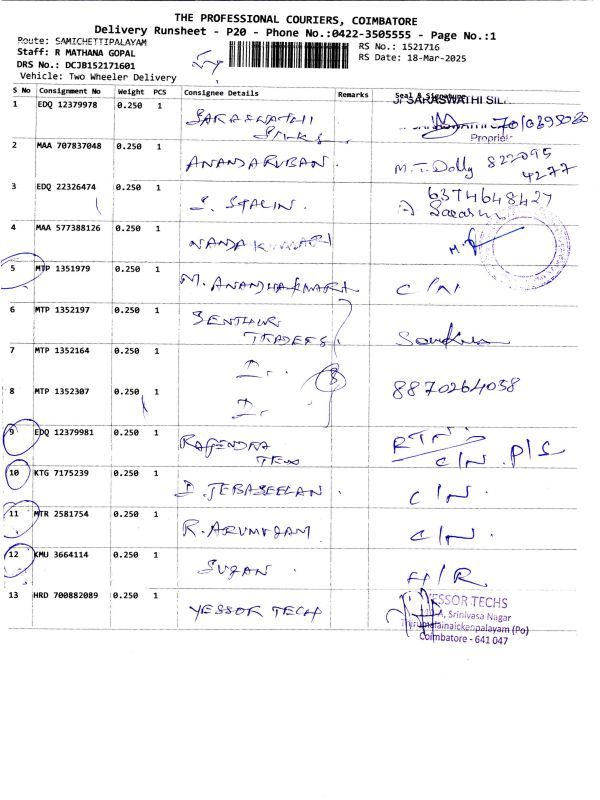 THE PROFESSIONAL COURIERS, COIMBATORE
Delivery Runsheet - P20 - Phone No.:0422-3505555 - Page No.:1
Route: SAMICHETTIPALAYAM
Staff: R MATHANA GOPAL
DRS No.: DCJB152171601
Vehicle: Two Wheeler Delivery
RS No.: 1521716
RS Date: 18-Mar-2025
S No Consignment No Weight PCS Consignee Details Remarks Seal & Signature
SARASWATHI SIL
1 EDQ 12379978 0.250 1 SARASWATHI
SILKS.
Propriet
2 MAA 707837048 0.250 1 ANANDARUBAN. M.T. Dolly 822095
4277
3 EDQ 22326474 0.250 1 S. STALIN. 6374648427
4 MAA 577388126 0.250 1 NANDA KUMARI
5 MTP 1351979 0.250 1 M. ANANDHAKUMAR C/N
6 MTP 1352197 0.250 1 SENTHUR
TRADERS.
7 MTP 1352164 0.250 1
8 MTP 1352307 0.250 1 8870264058
9 EDQ 12379981 0.250 1 RAJENDRA
TEX
C/N. P/S
10 KTG 7175239 0.250 1 D. JEBASEELAN C/N.
11 MTR 2581754 0.250 1 R. ARUMUGAM C/N.
12 KMU 3664114 0.250 1 SUJAN. H/R
13 HRD 700882089 0.250 1 YESSOR TECH
YESSOR TECHS
A, Srinivasa Nagar
Thirumalainaickenpalayam (Po)
Coimbatore - 641 047